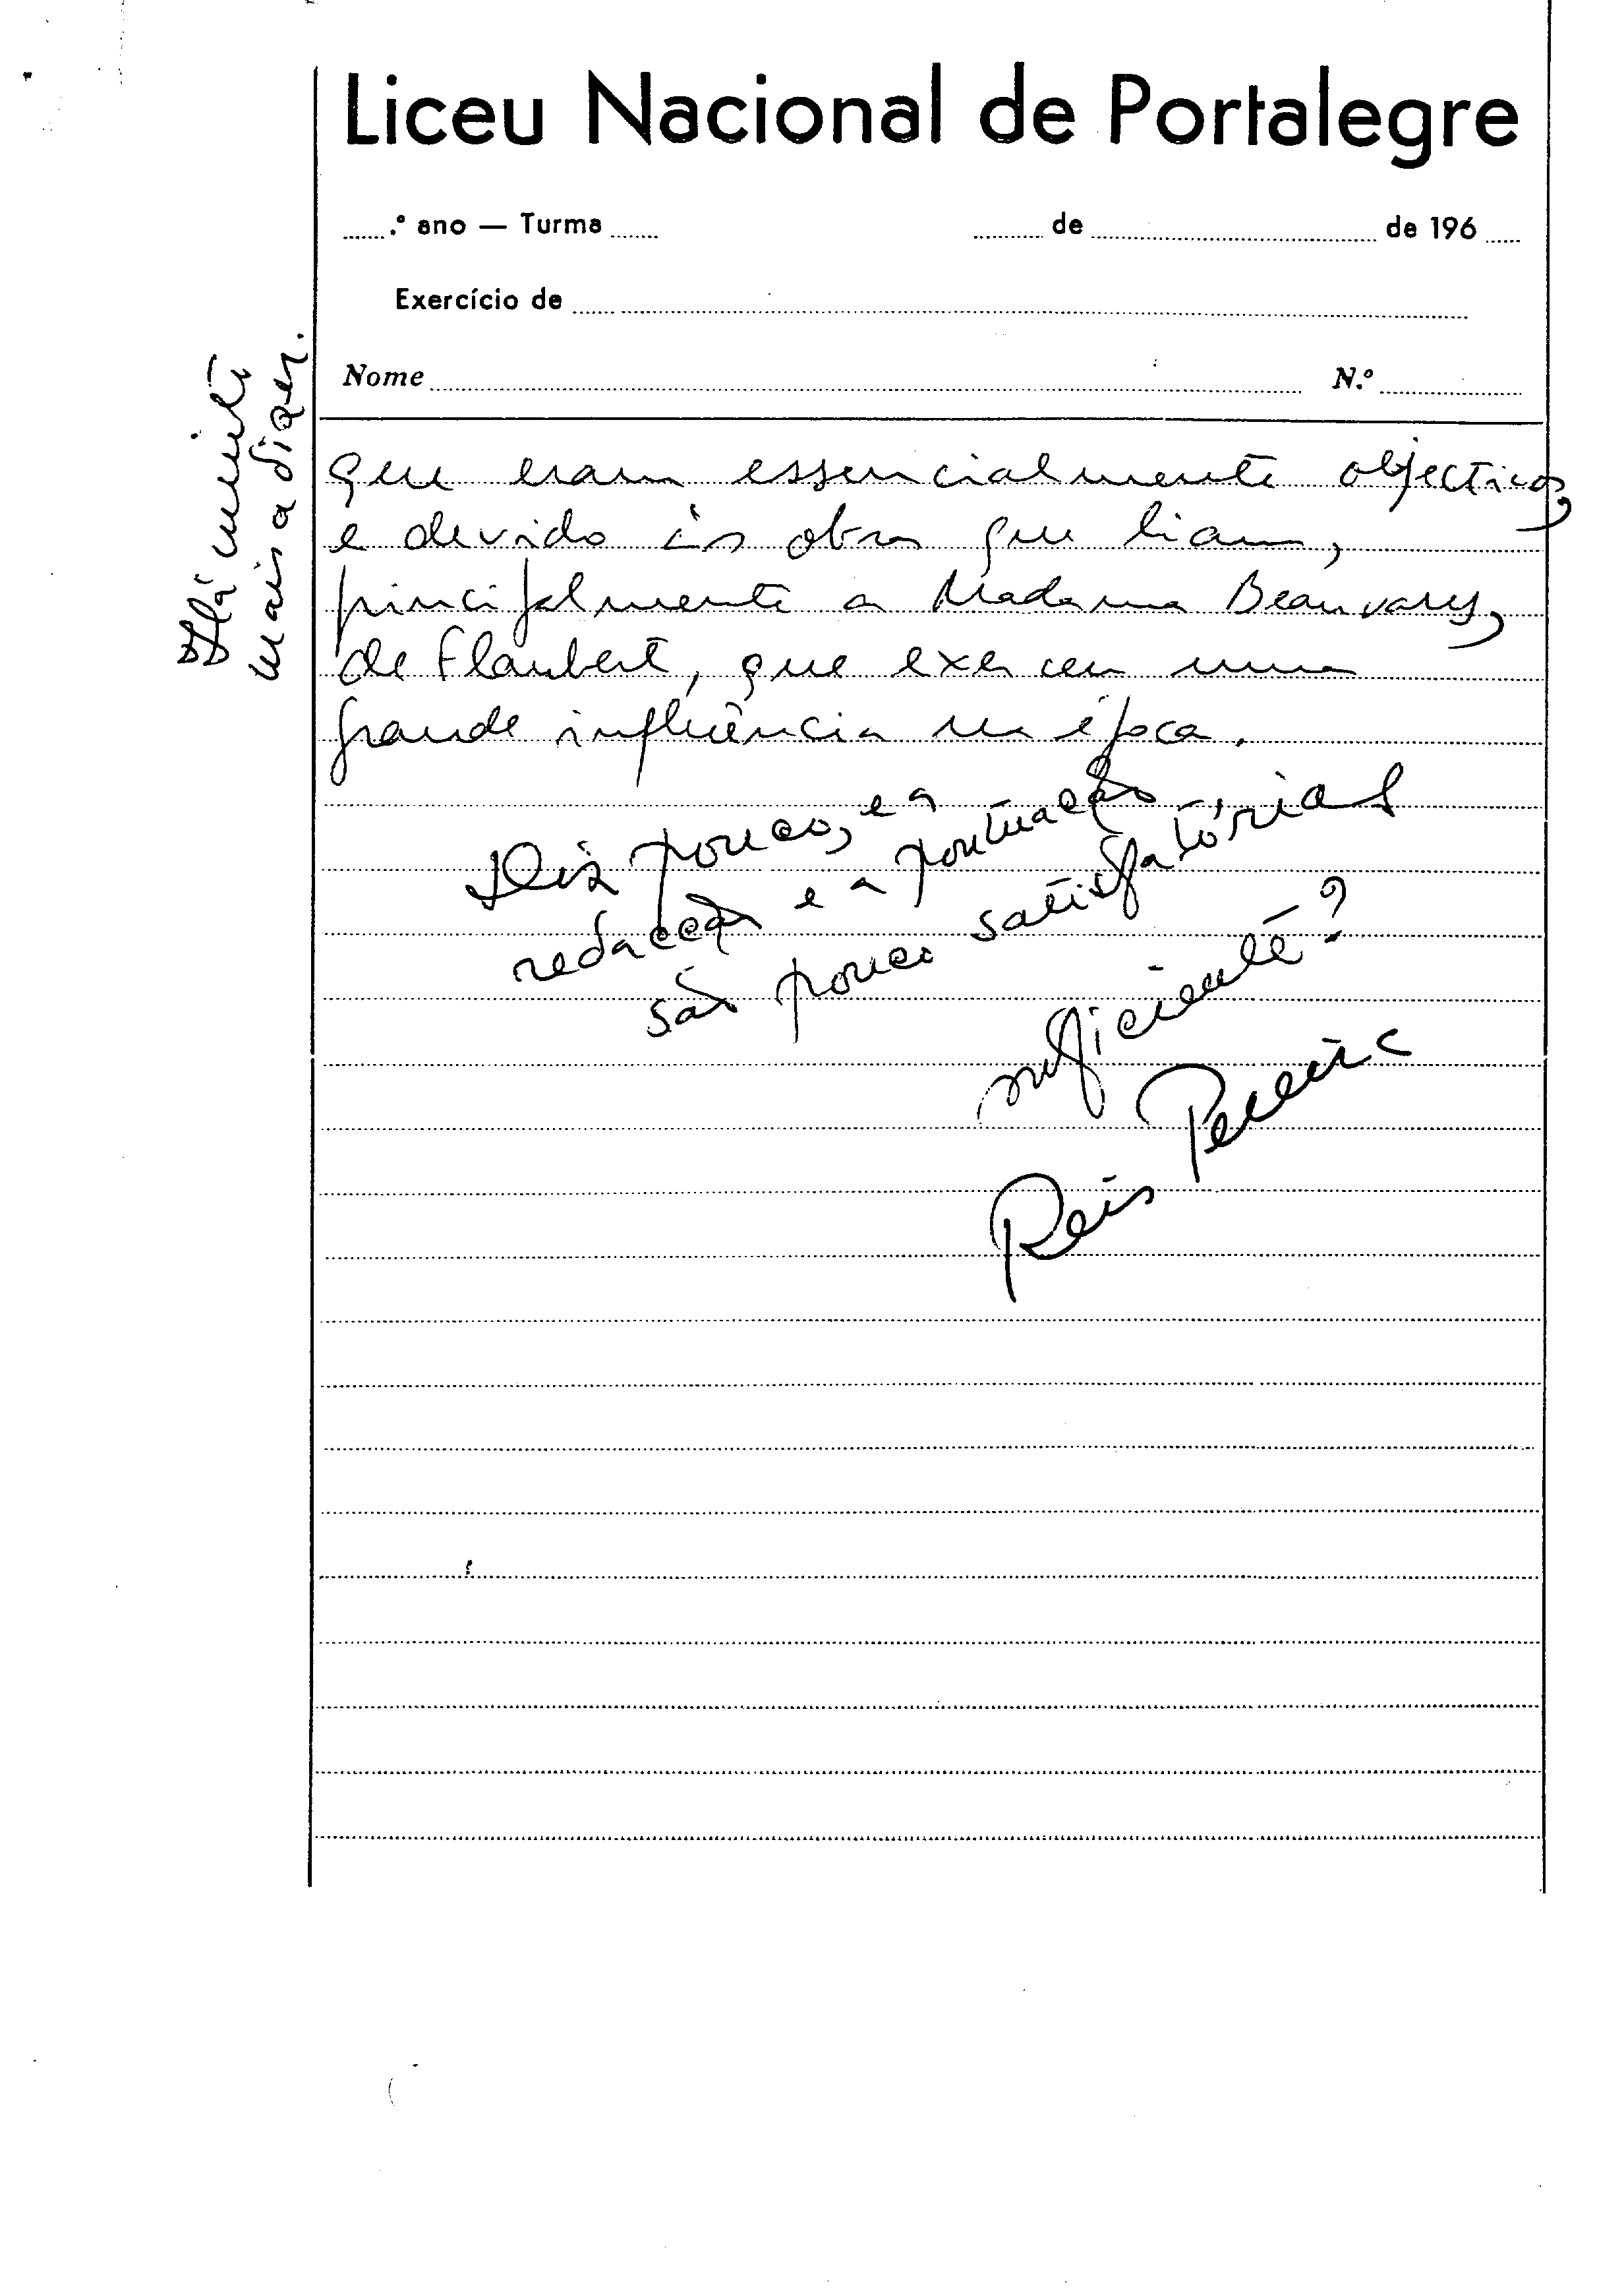 Liceu Nacional de Portalegre
.º ano — Turma de de 196
Exercício de
Nome N.º
Há muito
mais a dizer.
que eram essencialmente objectivos,
e devido às obras que liam,
principalmente a Madame Beauvary,
de Flaubert, que exerceu uma
grande influência na época.
Diz pouco, e a
redacção e a pontuação
são pouco satisfatórias
suficiente?
Reis Pereira